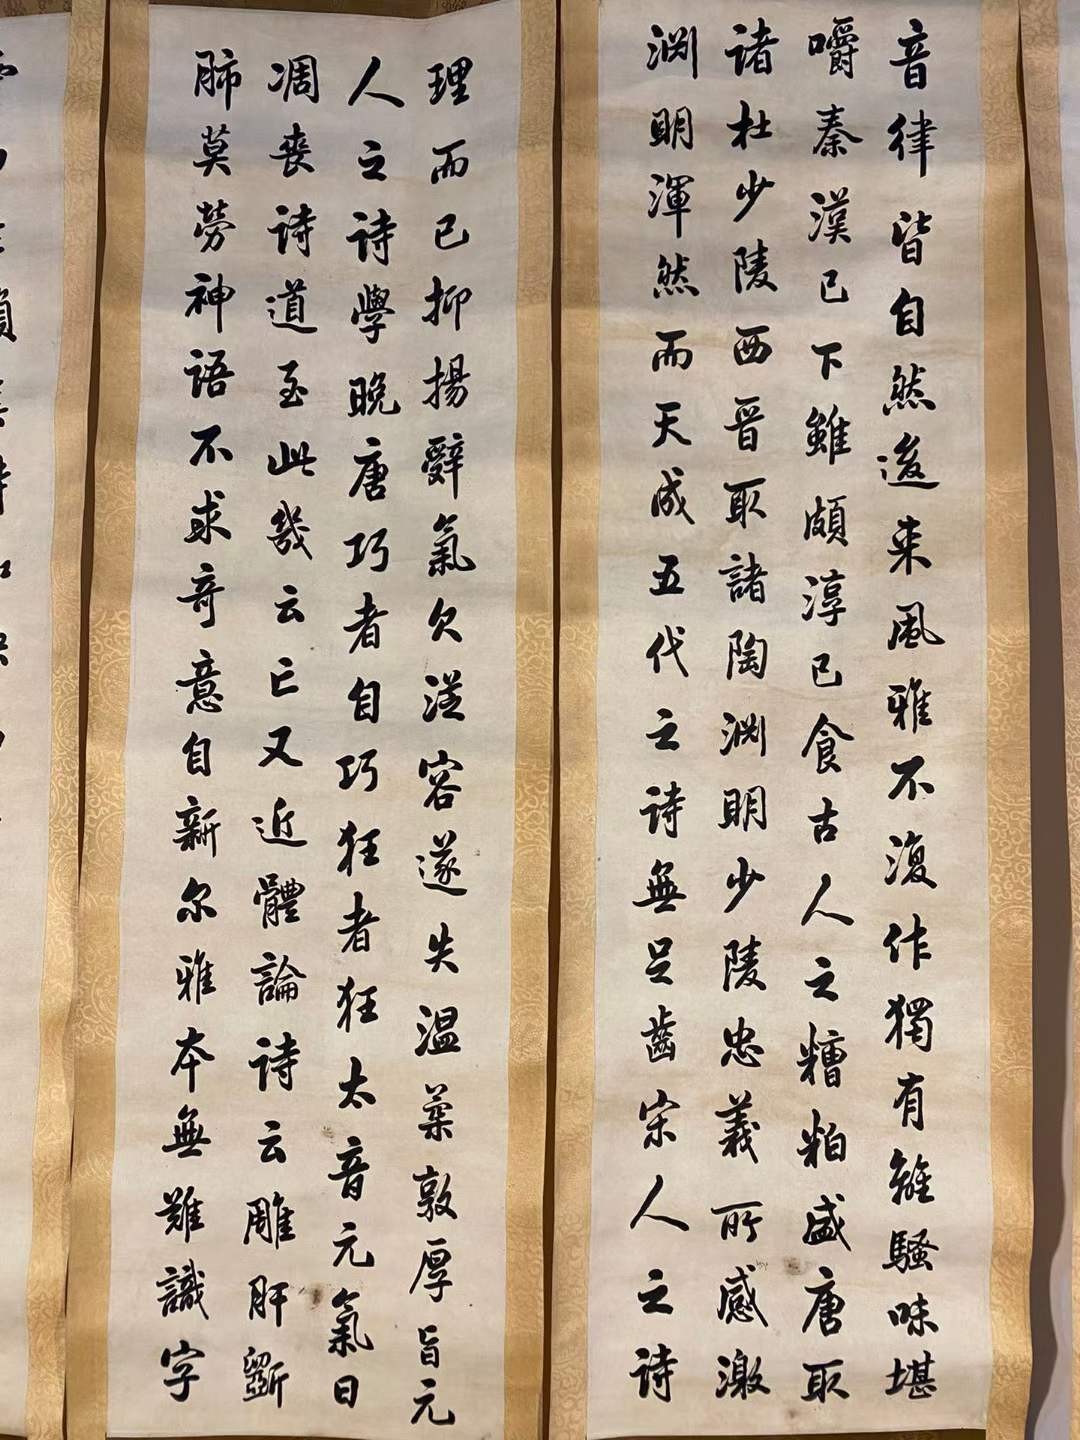 音律皆自然後来風雅不復作獨有離騷味堪
嚼秦漢已下雖頗淳已食古人之糟粕盛唐取
諸杜少陵西晋取諸陶渊明少陵忠義所感激
渊明渾然而天成五代之诗無足齒宋人之诗
理而已抑揚辭氣欠従容遂失温柔敦厚旨元
人之诗學晚唐巧者自巧狂者狂太音元氣日
凋丧诗道至此幾云亡又近體論诗云雕肝劉
肺莫勞神語不求奇意自新尔雅本無難識字